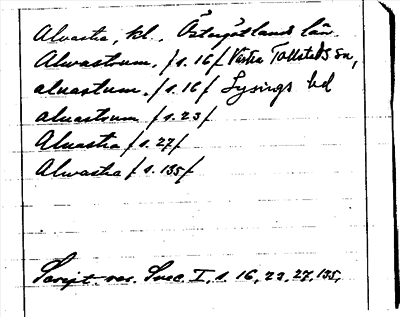 Alvastra, kl., Östergötlands län.
Alwastrum. / s. 16 / Västra Tollstads sn,
aluastum. / s. 16 / Lysings hd
aluastrum / s. 23 /
Aluastra / s. 27 /
Alwastra / s. 135 /
Script. rer. Svec. I, s. 16, 23, 27, 135.